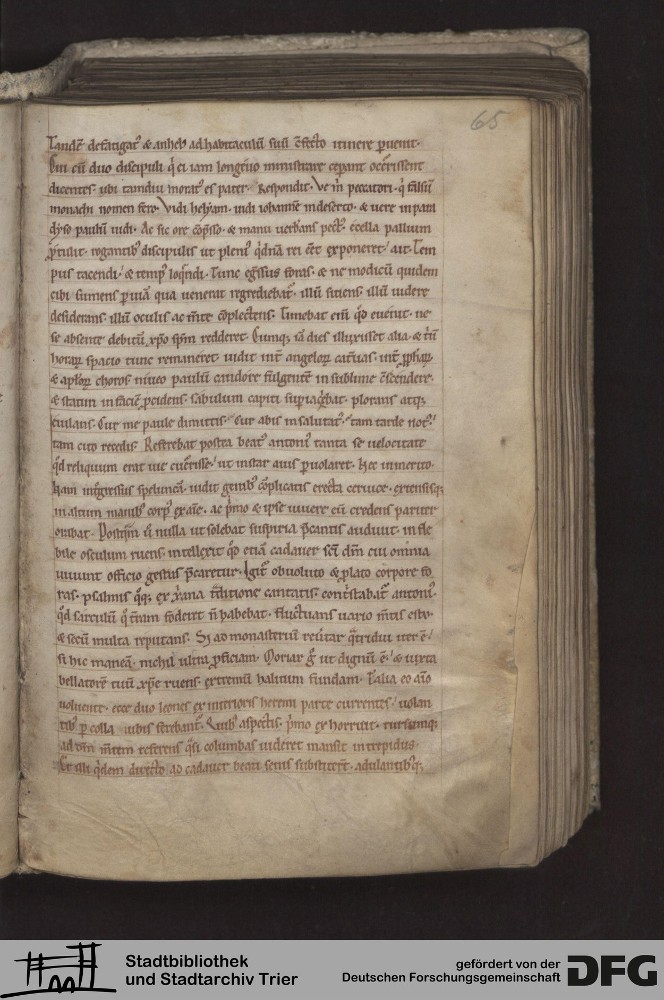 65
Tandē defatigat᷒ & anhel᷒ ad habitaculū suū ꝯfecto itinere ꝑuenit·
Cui cū duo discipuli q̇ ei iam longeuo ministrare ceperant occrissent
dicentes· ubi tamdiu morat᷒ es pater· Respondit· Ve m̄ peccatori· q̇ falsū
monachi nomen fero· Vidi helyam· uidi iohannē in deserto· & uere in para
dyso paulū uidi· Ac sic ore cōpsso· & manu uerberans pect᷒· ecella pallium
ꝓtulit· rogantib᷒ discipulis ut pleni᷒ qdnā rei eēt exponeret· ait· Tem
pus tacendi· & temp᷒ loq̄ndi· Tunc egssus foras· & ne modicū quidem
cibi sumens ꝑ uiā qua uenerat regrediebat᷒· illū sitiens· illū uidere
desiderans· illū oculis ac m̄te cōplectens· Timebat eni qđ euenit· ne
se absente debitū xp̄o spm redderet· Cumq; iā dies illuxisset alia· & triū
horarū spacio iter remaneret· uidit int̄ angelorū cat̄uas· int̄ ꝓphaꝝ
& aplorū choros niueo paulū candore fulgentē in sublime ꝯscendere·
& statim in faciē ꝓcidens· sabulum capiti suꝑiaciebat· plorans atq;
eiulans· Cur me paule dimittis· Cur abis insalutat᷒· tam tarde not᷒·
tam cito recedis· Referebat postea beat᷒ antoni᷒ tanta se uelocitate
qđ reliquum erat uie cucrisse· ut instar auis ꝑuolaret· Nec inmerito·
Nam int̄gressus speluncā· uidit genib᷒ cōplicatis erecta ceruice· extensisq;
in altum manib᷒ corp᷒ exaīe· ac pmo & ipse uiuere eū credens pariter
orabat· Postqm ū nulla ut solebat suspiria p̄cantis audiuit· in fle
bile osculum ruens intellexit qđ etiā cadauer scī dm̄ cui omnia
uiuunt officio gestus p̄caretur· Igit᷒ obuoluto & ꝓlato corpore fo
ras· psalmis q̄q; ex xp̄iana t̄ditione cantatis· cont̄stabat᷒ antoni᷒
qđ sarculū q t̄ram foderet n̄ habebat· fluctuans uario m̄tis estu·
& secū multa reputans· Si ad monasteriū reūtar q̄tridui iter ē·
si hic maneā· nichil ultra ꝓficiam· Moriar g̊ ut dignū ē· & iuxta
bellatorē tuū xp̄e ruens· extremū halitum fundam· Talia eo aīo
uoluente· ecce duo leones ex interioris heremi parte currentes· uolan
tib᷒ ꝑ colla iubis ferebant᷒· Quib᷒ aspectis· pmo exhorruit· rursumq;
ad dm̄ m̄tem referens q̄si columbas uideret mansit intrepidus·
Et illi q̇dem directo ad cadauer beati senis substiterūt· adulantib᷒q;
Stadtbibliothek
und Stadtarchiv Trier
gefördert von der
Deutschen Forschungsgemeinschaft
DFG